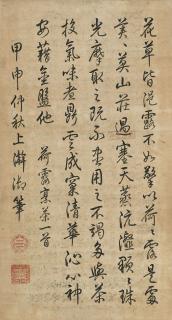 花草皆浥露不如擎以荷〻露是處
美莫山莊過塞天蒸沆瀣顆〻珠
光摩取之既不盡用之不竭多與茶
投氣味鼎雲成窠清華沁心神
安藉金盤他 荷露烹茶一首
甲申仲秋上澣御筆